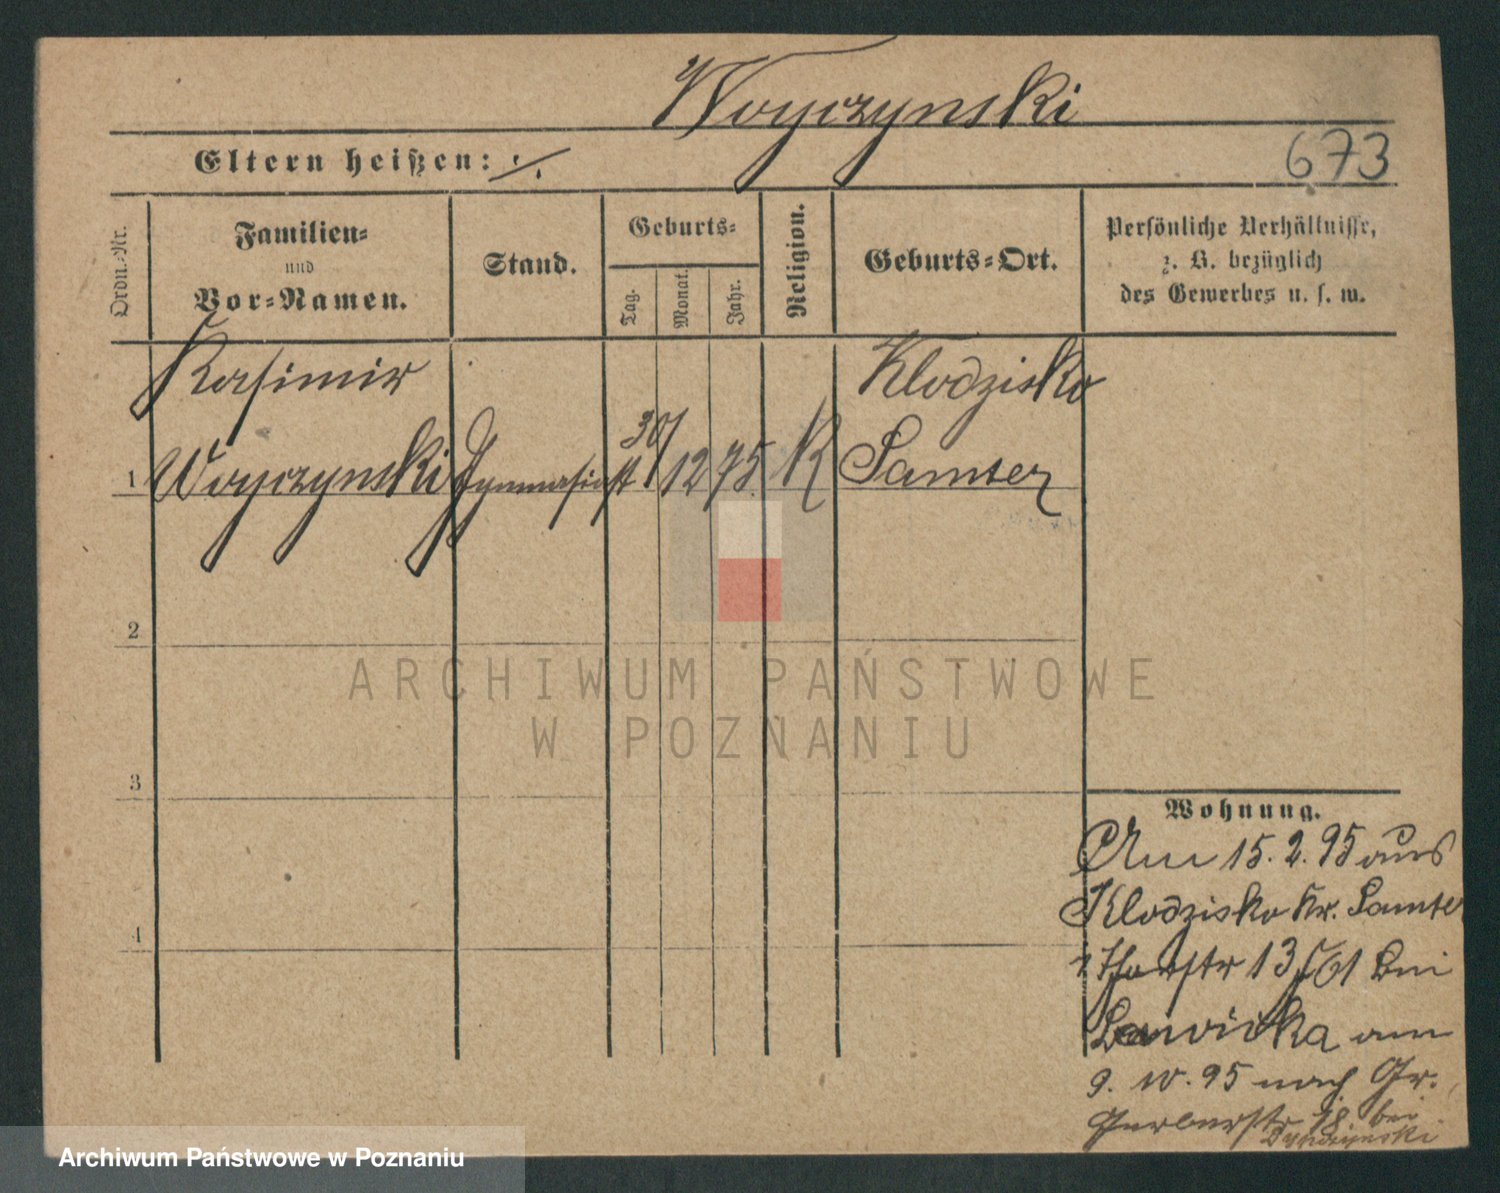 Woyczynski
673
Eltern heißen: ./.
Ordn.-Nr.
Familien- und Vor-Namen.
Stand.
Geburts-
Tag.
Monat.
Jahr.
Religion.
Geburts-Ort.
Persönliche Verhältnisse,
z. B. bezüglich
des Gewerbes u. s. w.
Kasimir
Klodzisko
1 Woyczynski Gymnasiast 30/ 12 75. K Samter
2
3
4
ARCHIWUM PAŃSTWOWE
W POZNANIU
Wohnung.
Am 15. 2. 95 aus
Klodzisko Kr. Samter
13 I bei
Lawicka am
9. 10. 95 nach Gr.
Gerberstr 18 bei
Archiwum Państwowe w Poznaniu